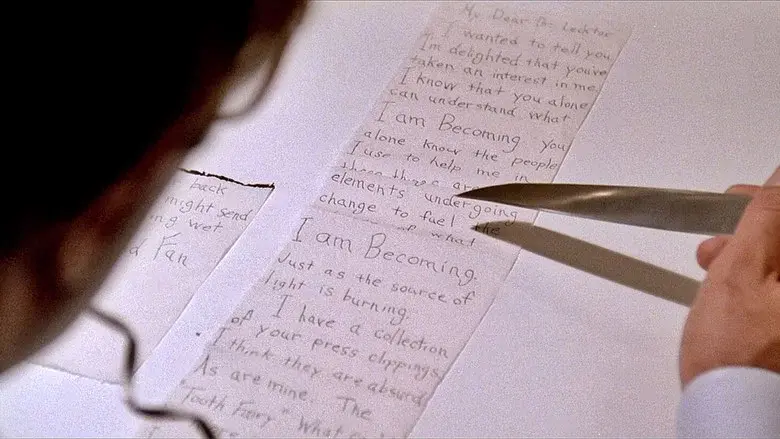 My Dear Dr. Lecktor
I wanted to tell you
I'm delighted that you've
taken an interest in me
I know that you alone
can understand what
I am Becoming you
alone know the people
I use to help me in
these are
elements undergoing
change to fuel the
of what
I am Becoming.
Just as the source of
light is burning.
I have a collection
of your press clippings.
I think they are absurd
As are mine. The
"Tooth Fairy" What
back
might send
ing wet
d Fan